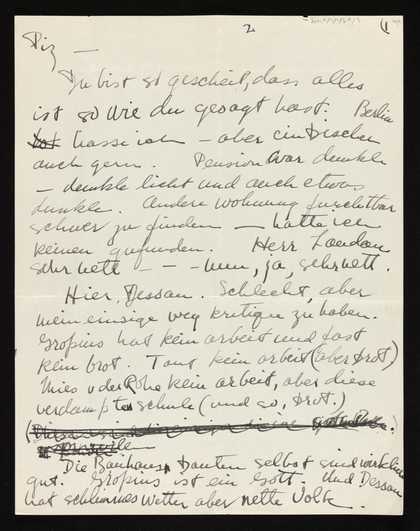 2
Piz —
Du bist so gescheit, dass alles
ist so wie du gesagt hast. Berlin
hasse ich — aber ein bischen
auch gern. Pension war dunkle
— dunkle licht und auch etwas
dunkle. Andere wohnung furchtbar
schwer zu finden — hatte ich
keinen gefunden. Herr Landau
sehr nett — — — nun, ja, sehr nett.
Hier, Dessau. Schlecht, aber
mein einsige weg kritique zu haben.
Gropius hat kein arbeit und fast
kein brot. Taut kein arbeit (aber brot)
Mies v der Rohe kein arbeit, aber diese
verdampte schule (und so, brot.)
Die Bauhaus bauten selbst sind wirklich
gut. Gropius ist ein Gott. Und Dessau
hat schlimmes wetter aber nette Volk.